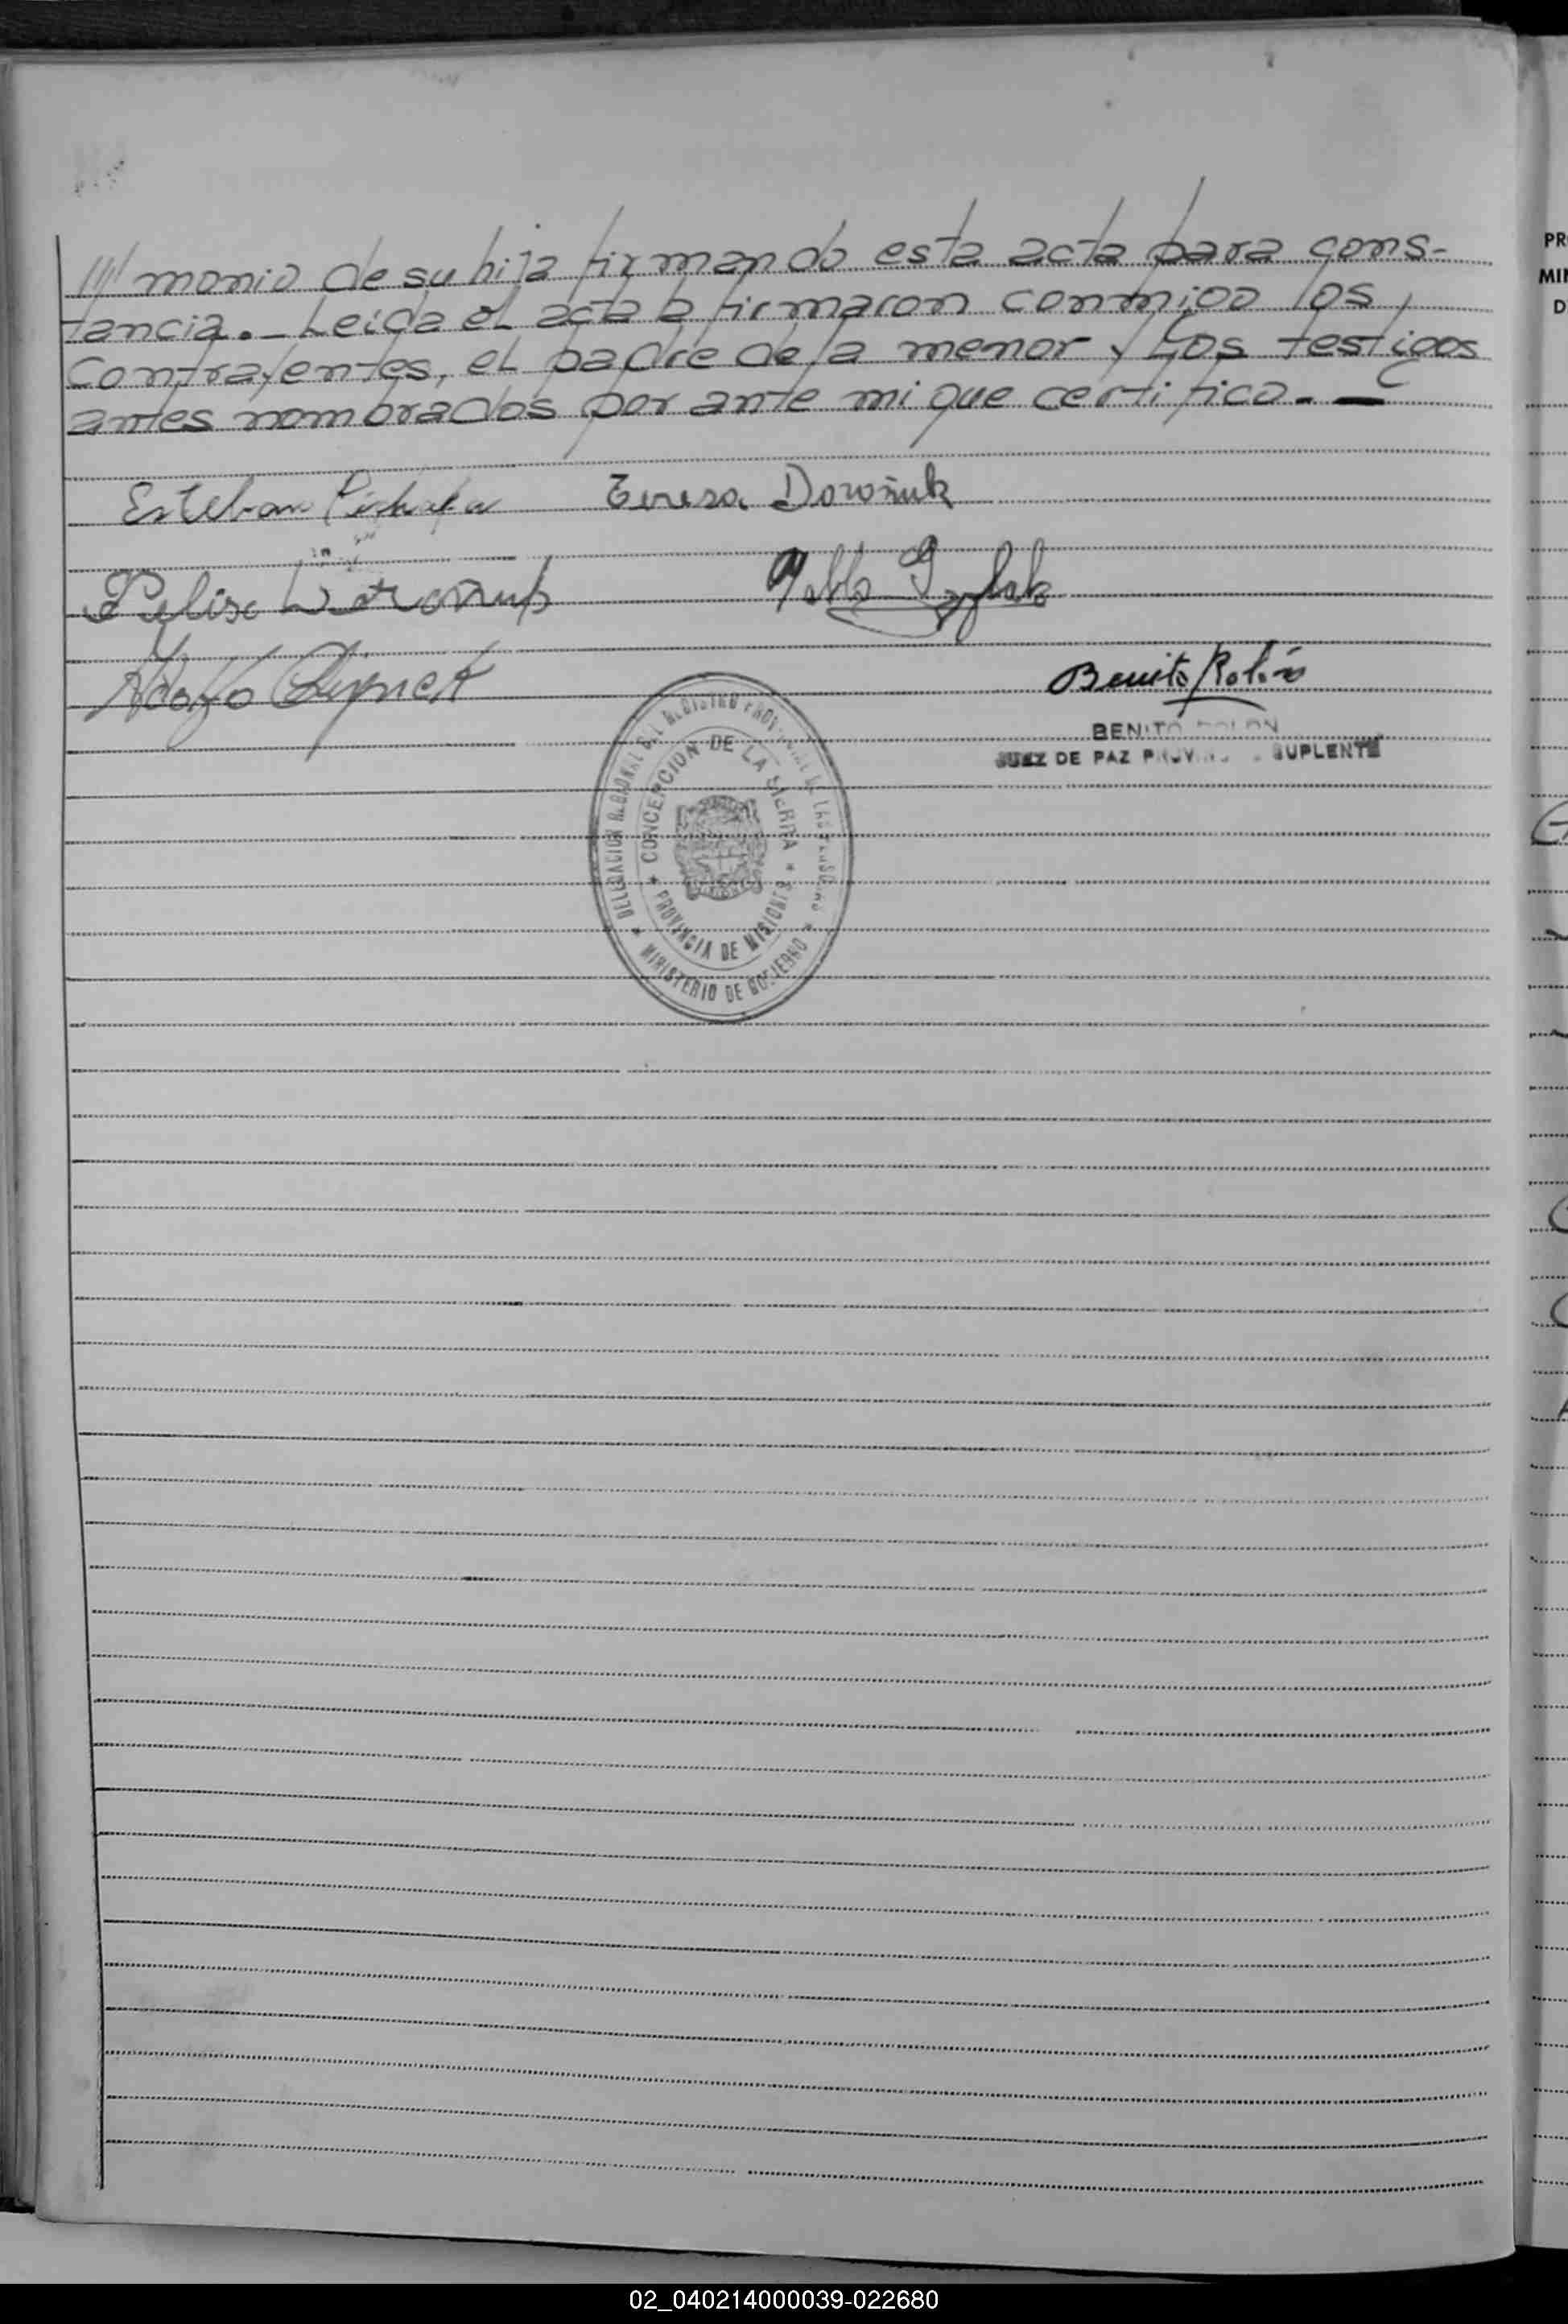 /// monio de su hija firmando esta acta para cons-
tancia. - Leída el acta a firmaron conmigo los
Contrayentes, el padre de la menor y Los testigos
antes nombrados por ante mi que certifico. -
Esteban
Teresa Doroñuk
Pablo
Adolfo
Benito Rolón
BENITO ROLON
JUEZ DE PAZ PROVINC SUPLENTE
DELEGACION REGIONAL DEL REGISTRO PROVINCIAL DE LAS PERSONAS
CONCEPCION DE LA SIERRA
PROVINCIA DE MISIONES
MINISTERIO DE GOBIERNO
PR
MI
D
02_040214000039-022680